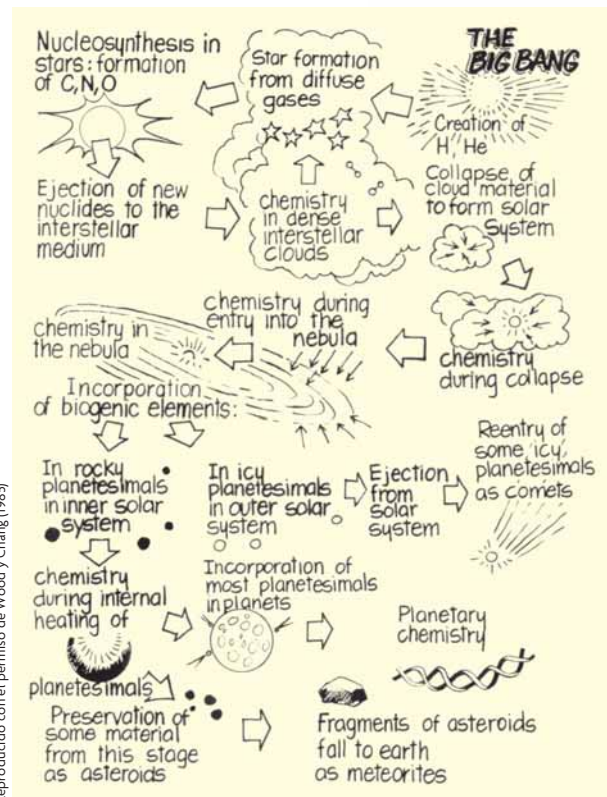 THE
BIG BANG
Creation of
H, He
Star formation
from diffuse
gases
Nucleosynthesis in
stars: formation
of C,N,O
Ejection of new
nuclides to the
interstellar
medium
chemistry
in dense
interstellar
clouds
Collapse of
cloud material
to form solar
System
chemistry
during collapse
chemistry during
entry into the
nebula
chemistry in
the nebula
Incorporation
of biogenic elements:
In rocky
planetesimals
in inner solar
system
In icy
planetesimals
in outer solar
system
Ejection
from
solar
system
Reentry of
some icy
planetesimals
as comets
chemistry
during internal
heating of
planetesimals
Incorporation of
most planetesimals
in planets
Planetary
chemistry
Preservation of
some material
from this stage
as asteroids
Fragments of asteroids
fall to earth
as meteorites
eproducido con el permiso de Wood y Chang (1985)